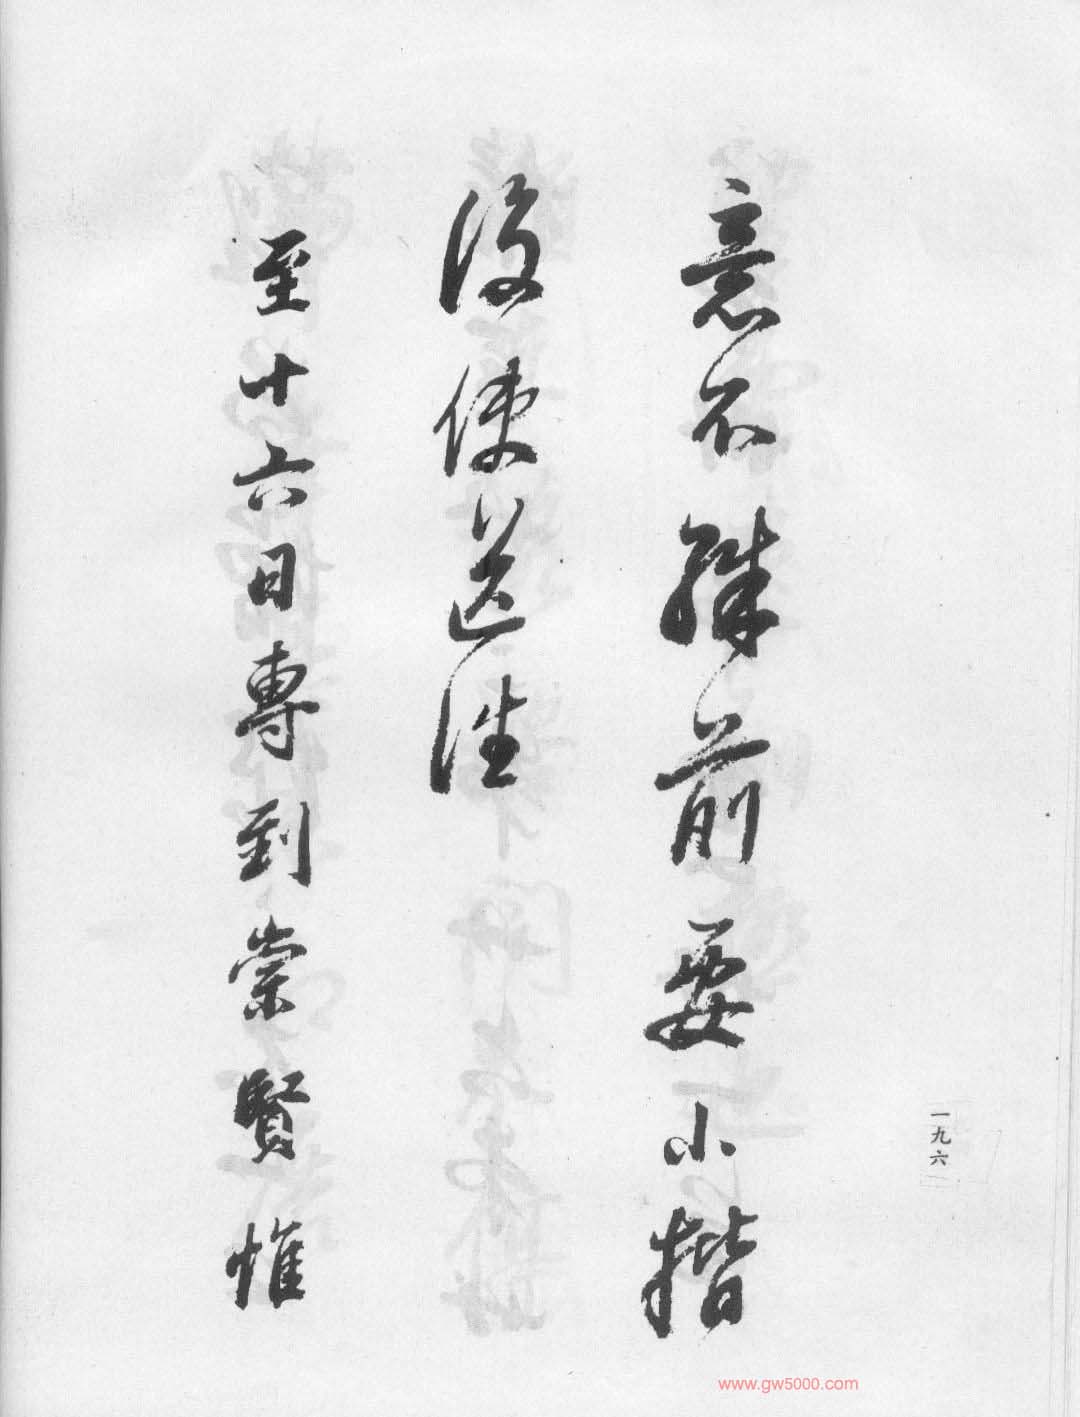 意不殊前要小楷
後使送往
至十六日專到崇賢惟
一九六
www.gw5000.com